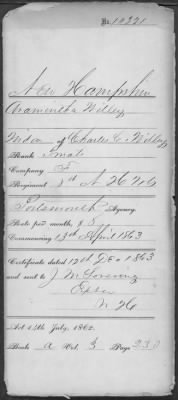 No. 10221
New Hampshire
Aramintha Willey
Widow of Charles C. Willey
Rank Private
Company F
Regiment 8th N H Vols
Portsmouth Agency.
Rate per month, $8
Commencing 13th April 1863
Certificate dated 12th Dec 1863
and sent to J M Lovering
Exeter
N H
Act 14th July, 1862.
Book A Vol. 3 Page 230